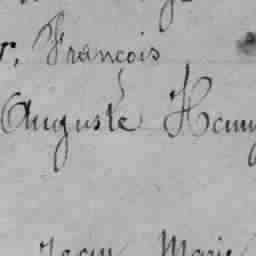 r, François
Auguste Henry
Jean Marie